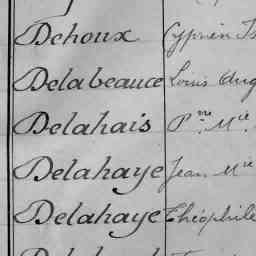 Dehoux Cyprien Is
Delabeauce Louis Aug
Delahais P.re M.ie
Delahaye Jean M.ie
Delahaye Théophile